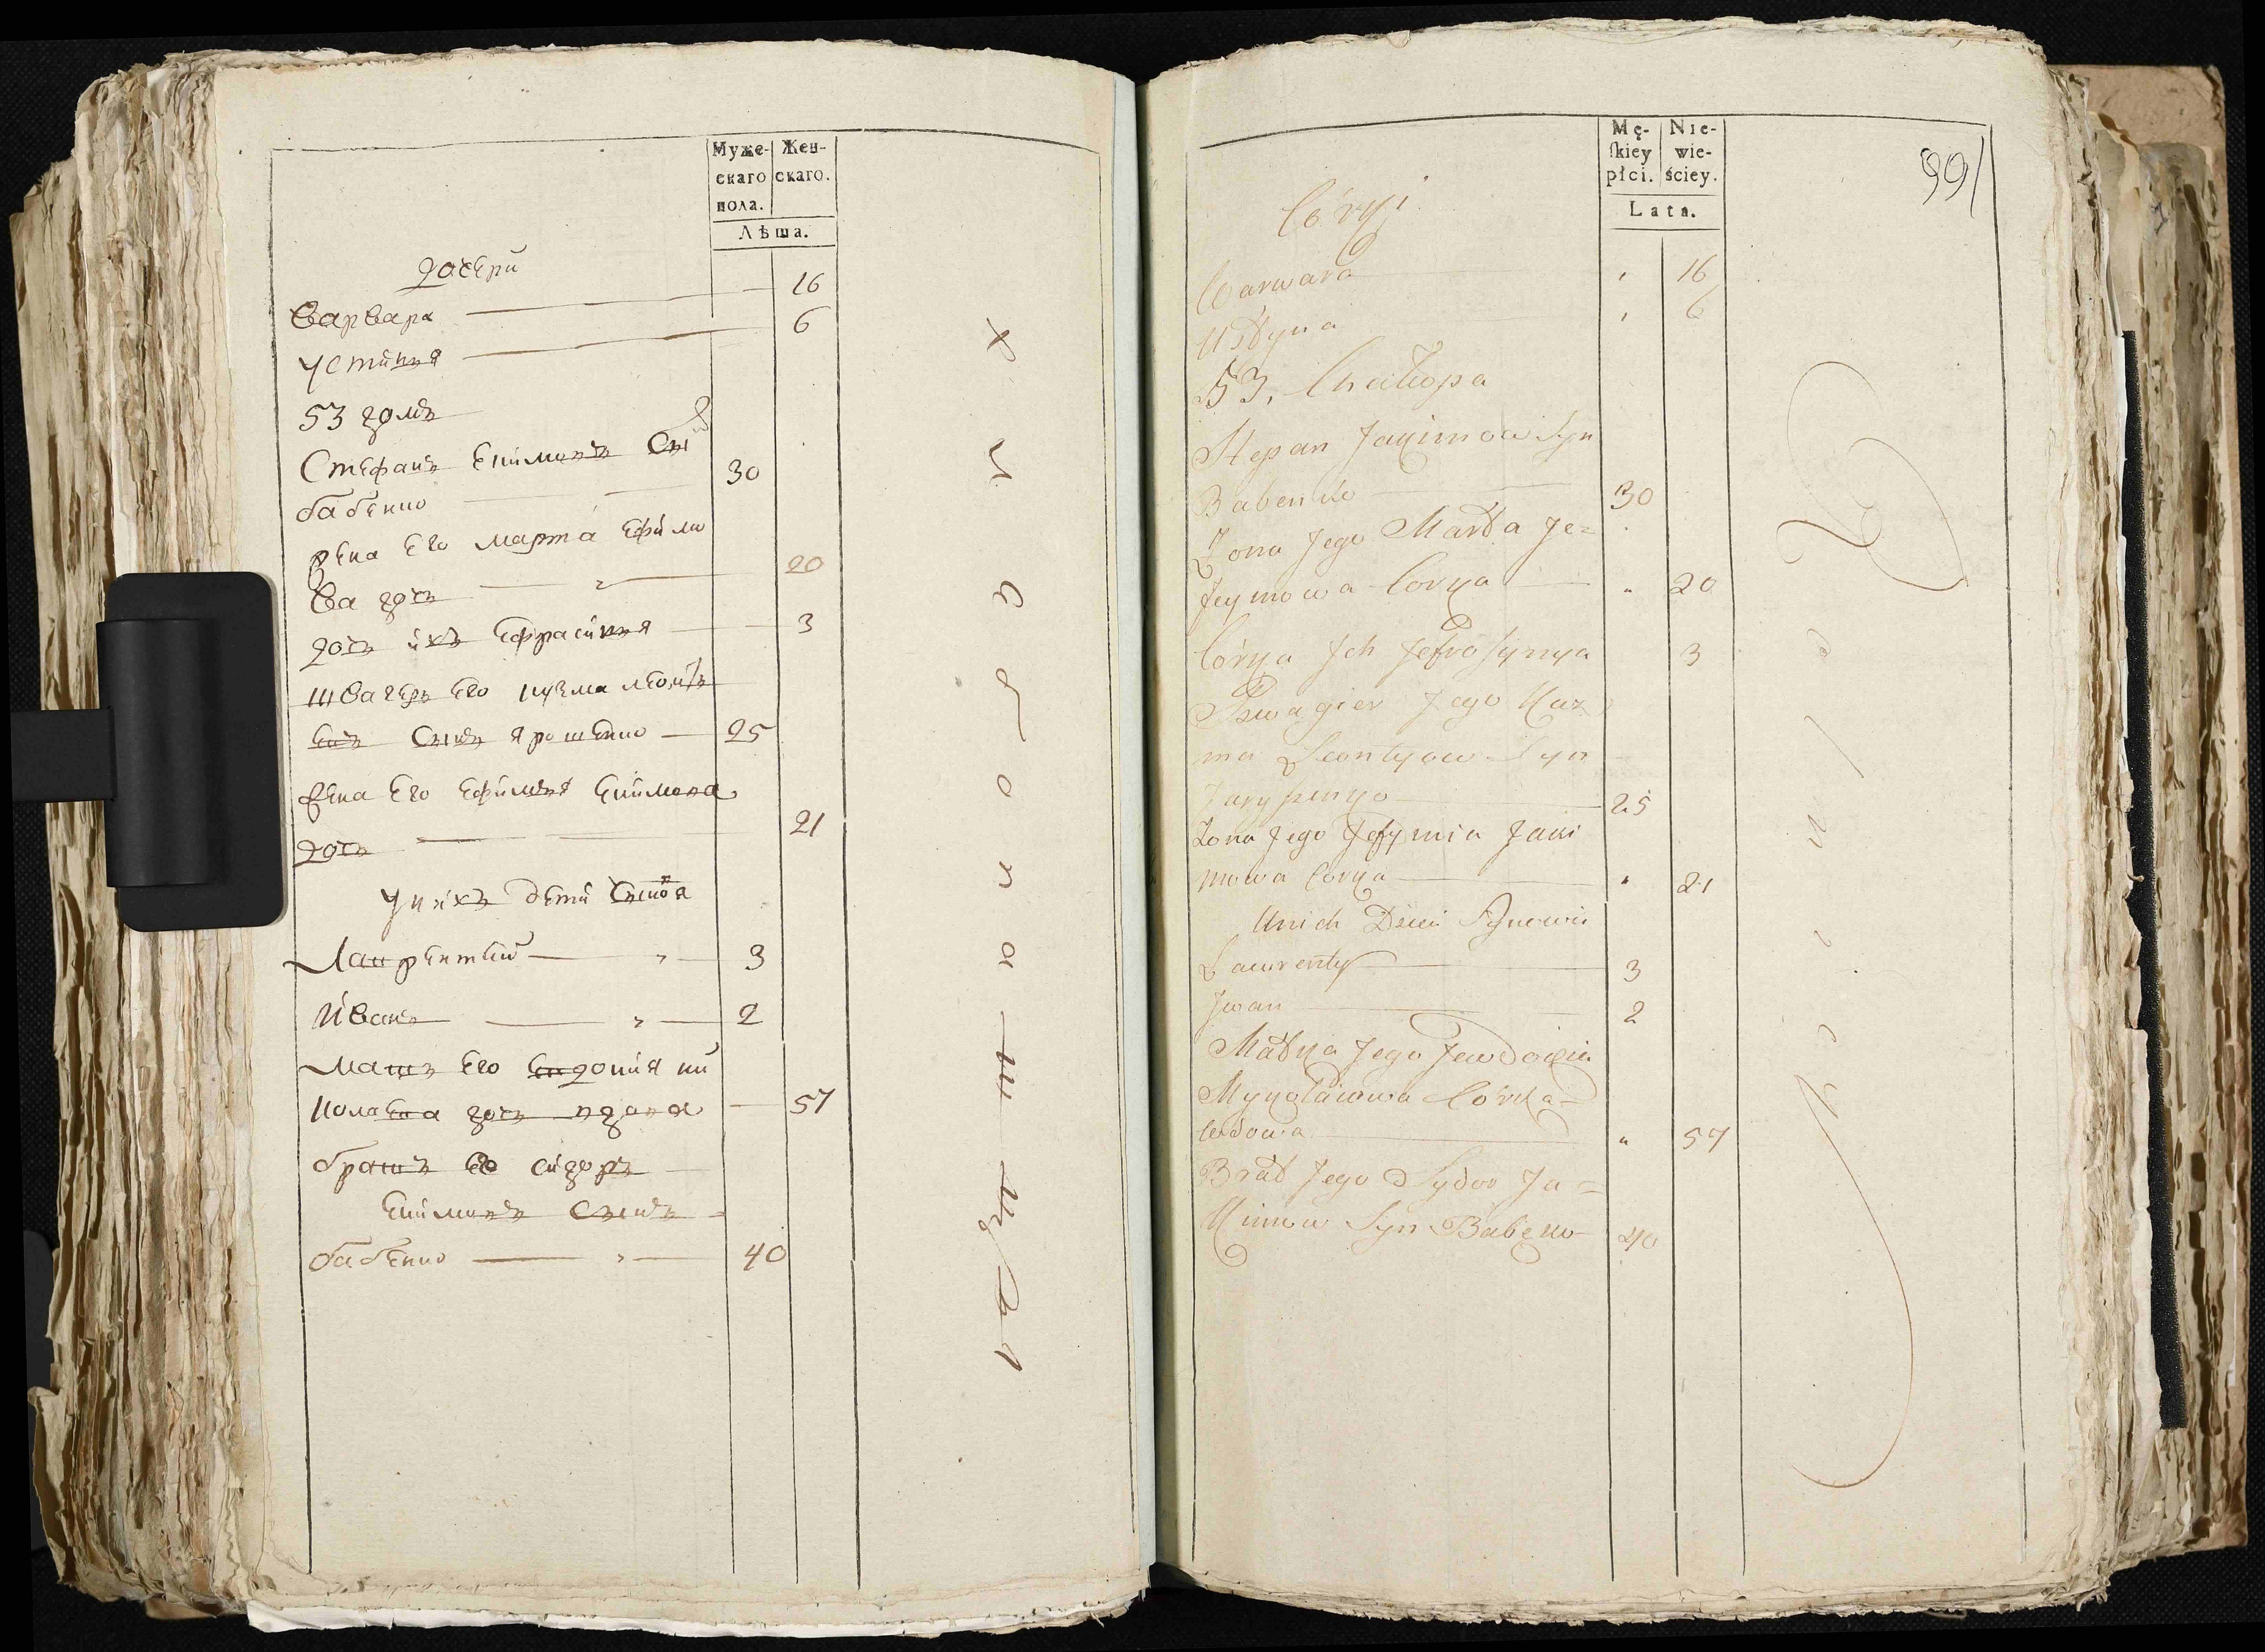 Муже-
скаго
пола.
Жен-
скаго.
Лѣта.
дочери
Варвара 16
Устинıя 6
53 домъ
Стефанъ Екимовъ Сынъ
бабенко 30
жена Его марта Ефимо
ва дочь 20
дочь ихъ Ефрасинıя 3
швагеръ Его кузма леонть
Евъ Сынъ ярошенко 25
жена Его Ефимıя Екимова
дочь 21
У нихъ дети Сыновя
Лаврентей 3
Иванъ 2
мать Его Евдокıя ни
колаева дочь вдова 57
братъ Его сидоръ
Екимовъ Сынъ
бабенко 40
Mę-
ſkiey
płci.
Nie-
wie-
ściey.
Lata.
99
Córki
Warwara 16
Ustyna 6
53, Chałupa
Stepan Jakimow Syn
Babenko 30
Zona Jego Marta Je=
fymowa Corka 20
Córka Ich Jefrosynya 3
Szwagier Jego Kuz
ma Leontyow Syn
Jaryszenko 25
Zona Jego Jefymia Jaki
mowa Corka 21
U nich Dzieci Synowie
Lawrenty 3
Jwan 2
Matka Jego Jewdokia
Mykołaiowa Córka
wdowa 57
Brat Jego Sydor Ja=
kimow Syn Babenko 40